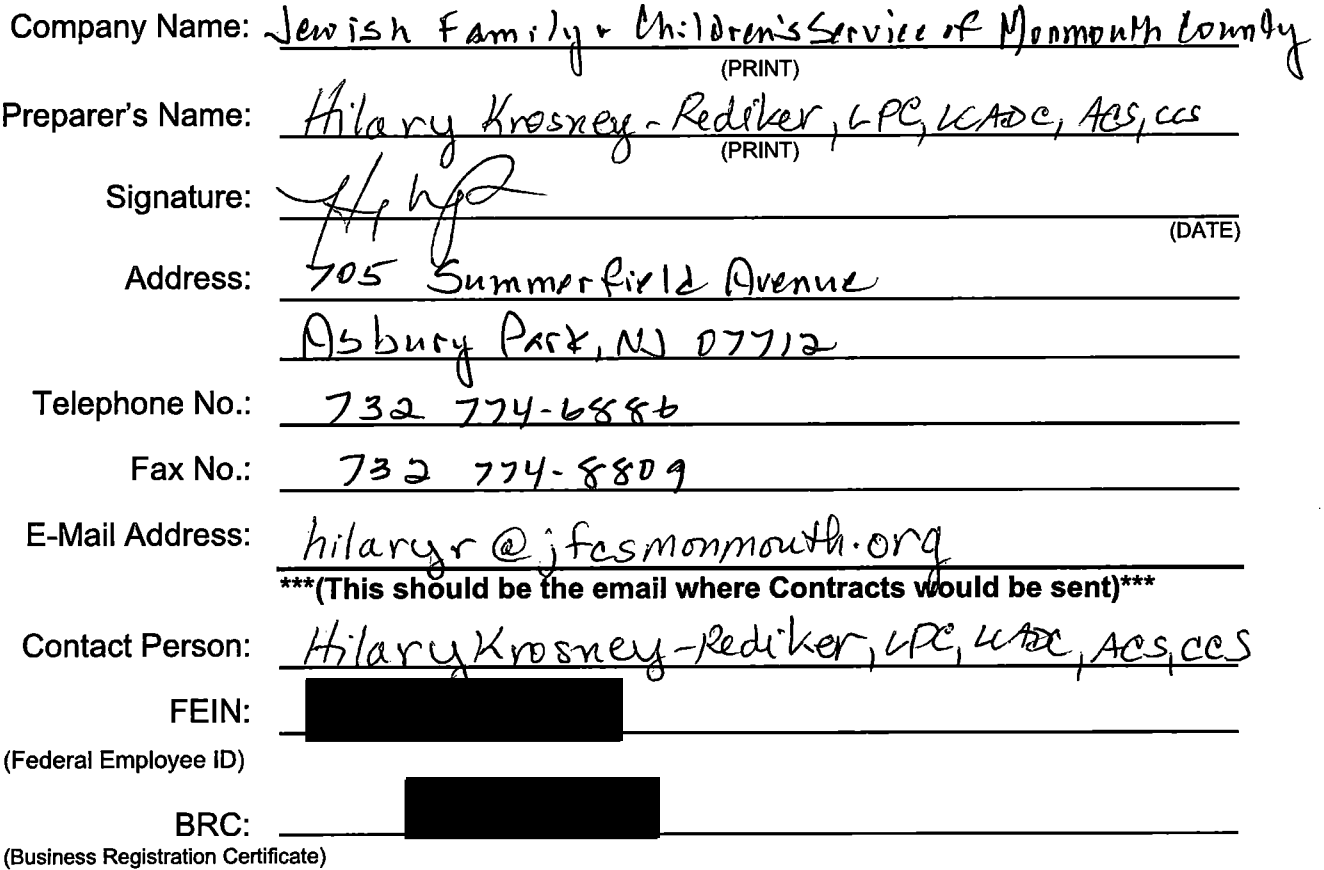 Company Name: Jewish Family & Children's Service of Monmouth County
(PRINT)
Preparer's Name: Hilary Krosney-Rediker, LPC, LCADC, ACS, CCS
(PRINT)
Signature:
(DATE)
Address: 705 Summerfield Avenue
Asbury Park, NJ 07712
Telephone No.: 732 774-6886
Fax No.: 732 774-8809
E-Mail Address: hilaryr@jfcsmonmouth.org
***(This should be the email where Contracts would be sent)***
Contact Person: Hilary Krosney-Rediker, LPC, LCADC, ACS, CCS
FEIN:
(Federal Employee ID)
BRC:
(Business Registration Certificate)